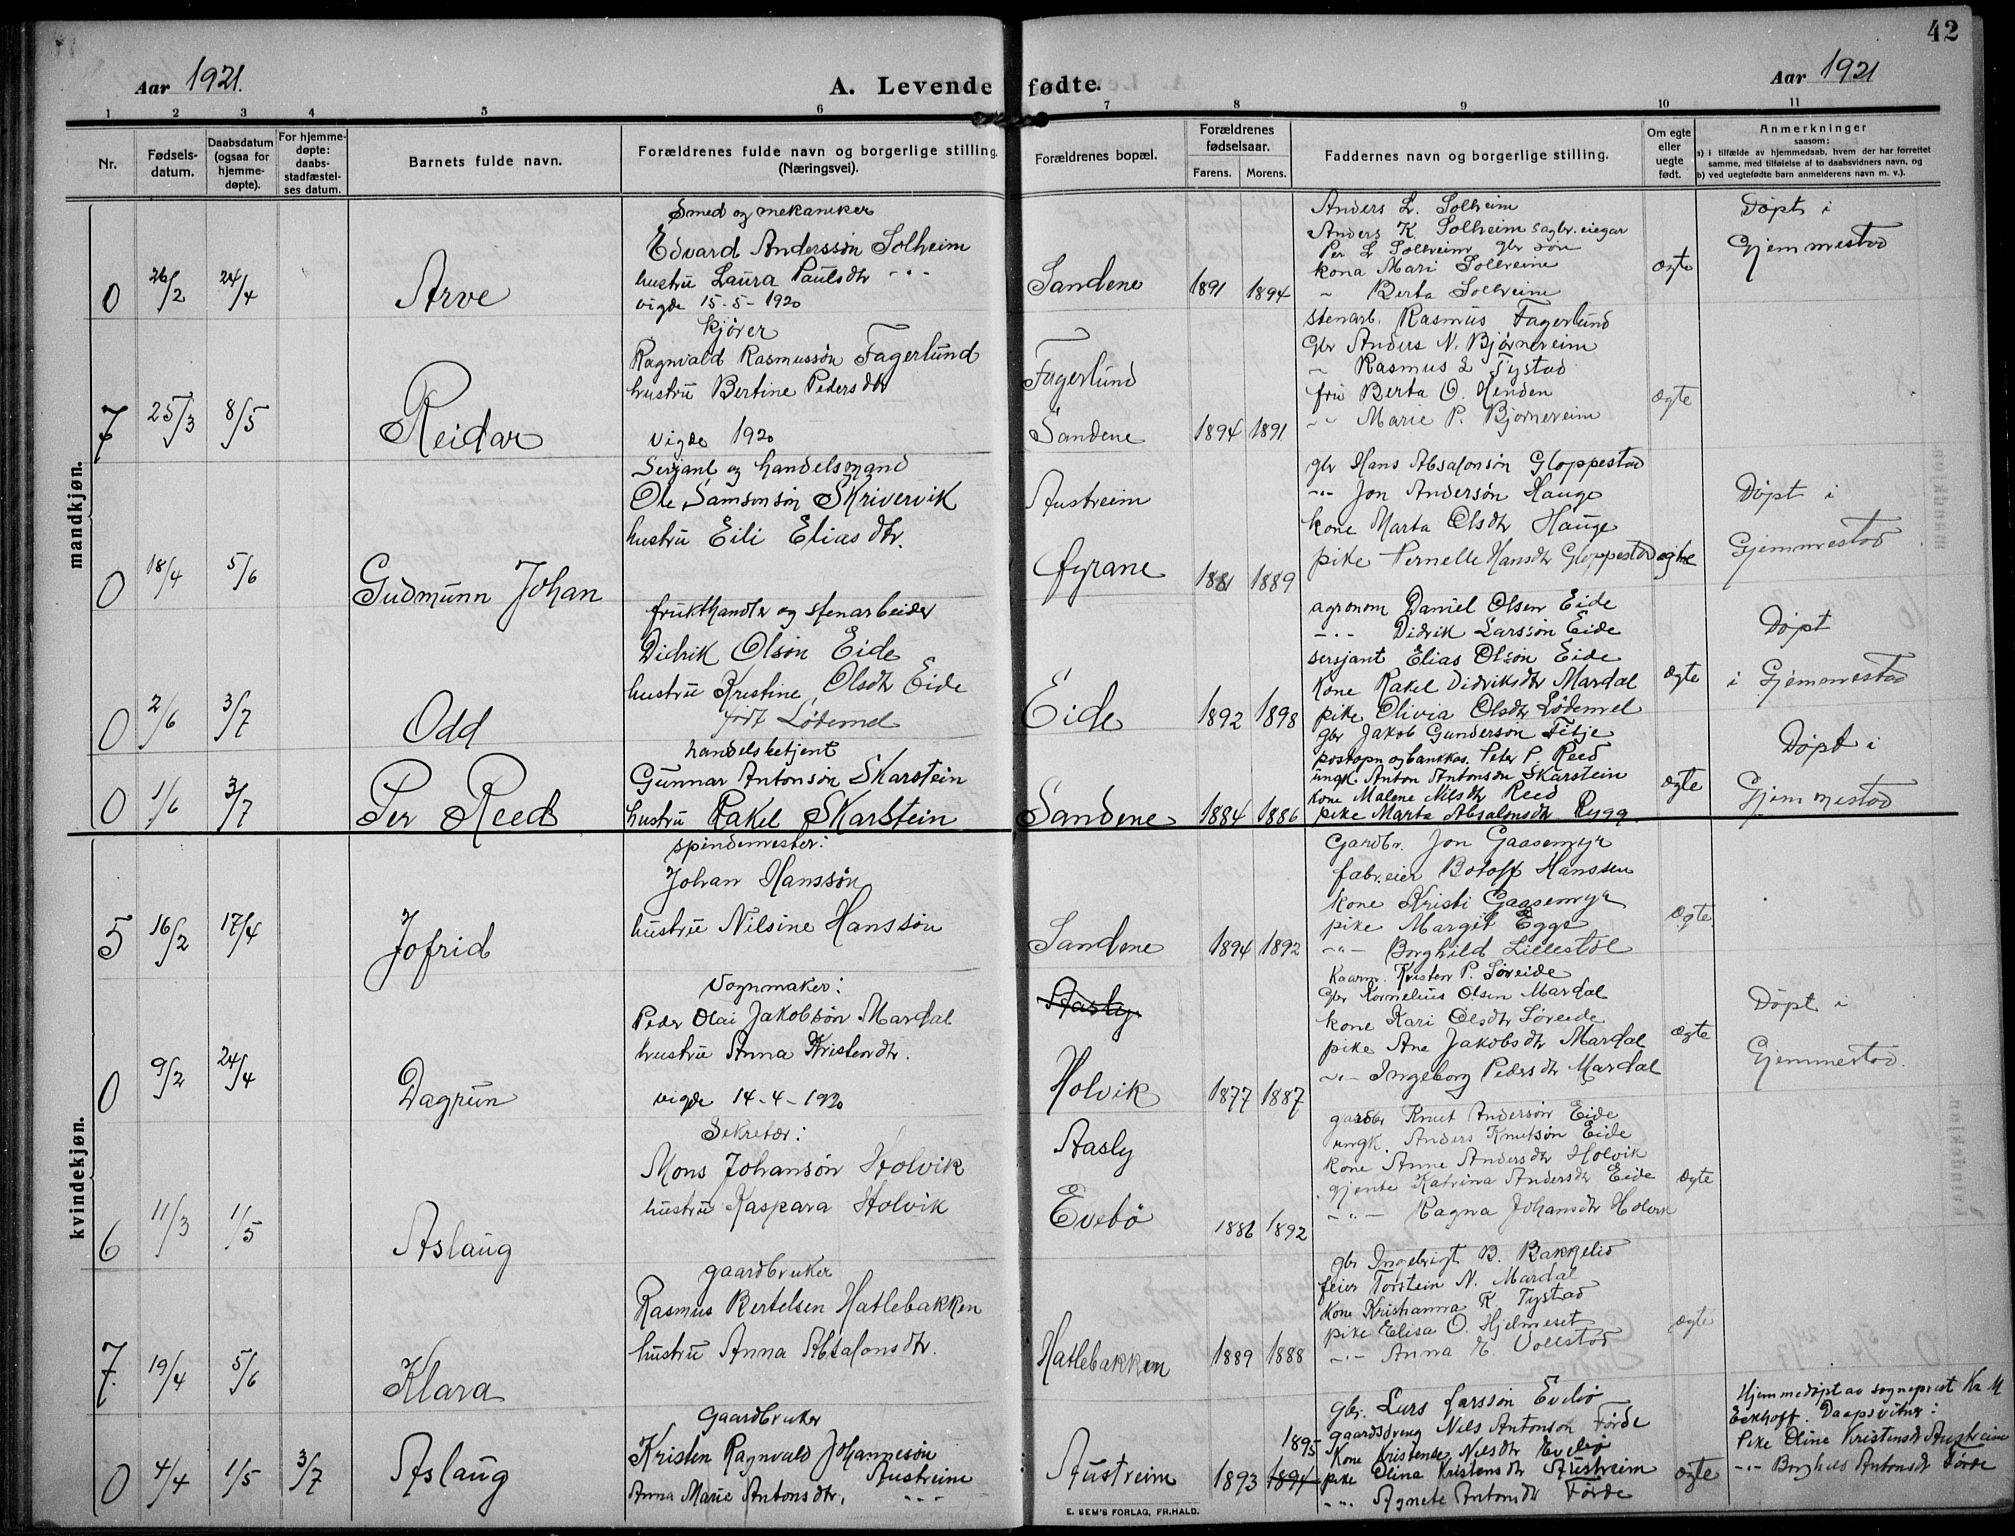 42
Aar 1921.
A. Levende fødte.
Aar 1921
1 2 3 4 5 6 7 8 9 10 11
Nr.
Fødsels-
datum.
Daabsdatum
(ogsaa for
hjemme-
døpte).
For hjemme-
døpte:
daabs-
stadfæstel-
ses datum.
Barnets fulde navn.
Forældrenes fulde navn og borgerlige stilling
(Næringsvei).
Forældrenes bopæl.
Forældrenes
fødselsaar.
Farens. Morens.
Faddernes navn og borgerlige stilling.
Om egte
eller
uegte
født.
Anmerkninger
saasom:
a) i tilfælde av hjemmedaab, hvem der har forrettet
samme, med tilføielse af to daabsvidners navn, og
b) ved uegtefødte barn anmelderens navn m. v.).
mandkjøn.
0 26/2 24/4 Arve
Smed og mekaniker
Edvard Anderssøn Solheim
hustru Laura Paulsdtr -"-
vigde 15-5-1920
Sandene 1891 1894
Anders L. Solheim
Anders K Solheim sagbr. eigar
Per L Solheim gbr søn
kona Mari Solheim
" Berta Solheim
ægte
Døpt i
Gjemmestad
7 25/3 8/5 Reidar
kjører
Ragnvald Rasmussøn Fagerlund
hustru Bertine Pedersdtr
vigde 1920
Fagerlund
Sandene 1894 1891
stenarb. Rasmus Fagerlund
Gbr Anders N. Bjørnereim
" Rasmus L Tystad
fru Berta O. Henden
-"- Marie P. Bjørnereim
ægte
0 18/4 5/6 Gudmunn Johan
Sersjant og handelsmand
Ole Samsonsøn Skrivervik
hustru Eili Eliasdtr.
Austreim
Fyrane 1881 1889
gbr Hans Absalonsøn Gloppestad
-"- Jon Andersøn Hauge
kone Marta Olsdtr Hauge
pike Pernelle Hansdtr Gloppestad
egte
Døpt i
Gjemmestad
0 2/6 3/7 Odd
frukthandlr og stenarbeider
Didrik Olsøn Eide
hustru Kristine Olsdtr Eide
født Lødemel
Eide 1892 1898
agronom Daniel Olsen Eide
-"- Didrik Larssøn Eide
sersjant Elias Olsøn Eide
Kone Rakel Didriksdtr Mardal
pike Olivia Olsdtr Lødemel
ægte
Døpt
i Gjemmestad
0 1/6 3/7 Per Reed
handelsbetjent
Gunnar Antonsøn Skarstein
hustru Rakel Skarstein
Sandene 1884 1886
gbr Jakob Gundersøn Fitje
postopn og bankkas. Peter P. Reed
ungk. Anton Antonsøn Skarstein
Kone Malene Nilsdtr Reed
pike Marta Absalonsdtr Rygg
ægte
Døpt i
Gjemmestad
kvindekjøn.
5 16/2 17/4 Jofrid
spindemester:
Johan Hanssøn
hustru Nilsine Hanssøn
Sandene 1894 1892
Gardbr. Jon Gaasemyr
fabr.eier Botolf Hanssen
kone Kristi Gaasemyr
pike Margit Egge
-"- Borghild Lillestøl
ægte
0 9/2 24/4 Dagrun
Vognmaker:
Peder Olai Jakobsøn Mardal
hustru Anna Kristendtr.
vigde 14-4-1920
Aasly
Holvik 1877 1887
Kaarm. Kristen P. Søreide
Gbr Kornelius Olsen Mardal
kone Kari Olsdtr Søreide
pike Ane Jakobsdtr Mardal
-"- Ingeborg Pedersdtr Mardal
ægte
Døpt i
Gjemmestad.
6 11/3 1/5 Aslaug
Sekretær:
Mons Johansøn Holvik
hustru Kaspara Holvik
Aasly
Evebø 1886 1892
gardbr Knut Andersøn Eide
ungk. Anders Knutsøn Eide
kone Anne Andersdtr Holvik
gjente Katrina Andersdtr Eide
-"- Ragna Johansdtr Holvik
ægte
7. 19/4 5/6 Klara
gaardbruker
Rasmus Bertelsen Hatlebakken
hustru Anna Absalonsdtr.
Hatlebakken 1889 1888
gbr Ingebrigt B. Bakkelid
feier Torstein N. Mardal
Kone Kristianna R. Tystad
pike Elisa O. Hjelmeset
-"- Anna E. Vollstad
ægte
0 4/4 1/5 3/7 Aslaug
Gaardbruker
Kristen Ragnvald Johannesøn
Austreim
Anna Marie Antonsdtr. -"-
Austreim 1893 1894 1895
gbr. Lars Larssøn Evebø
gaardsdreng Nils Antonson Førde
Kone Kristense Nilsdtr Evebø
pike Olina Kristensdtr Austreim
-"- Agnete Antonsdtr Førde
ægte
Hjemmedøpt av sogneprest Kr M
Eckhoff. Daapsvitner:
Pike Oline Kristensdt Austreim
-"- Borghild Antonsdt Førde
E. SEM'S FORLAG, FR.HALD.